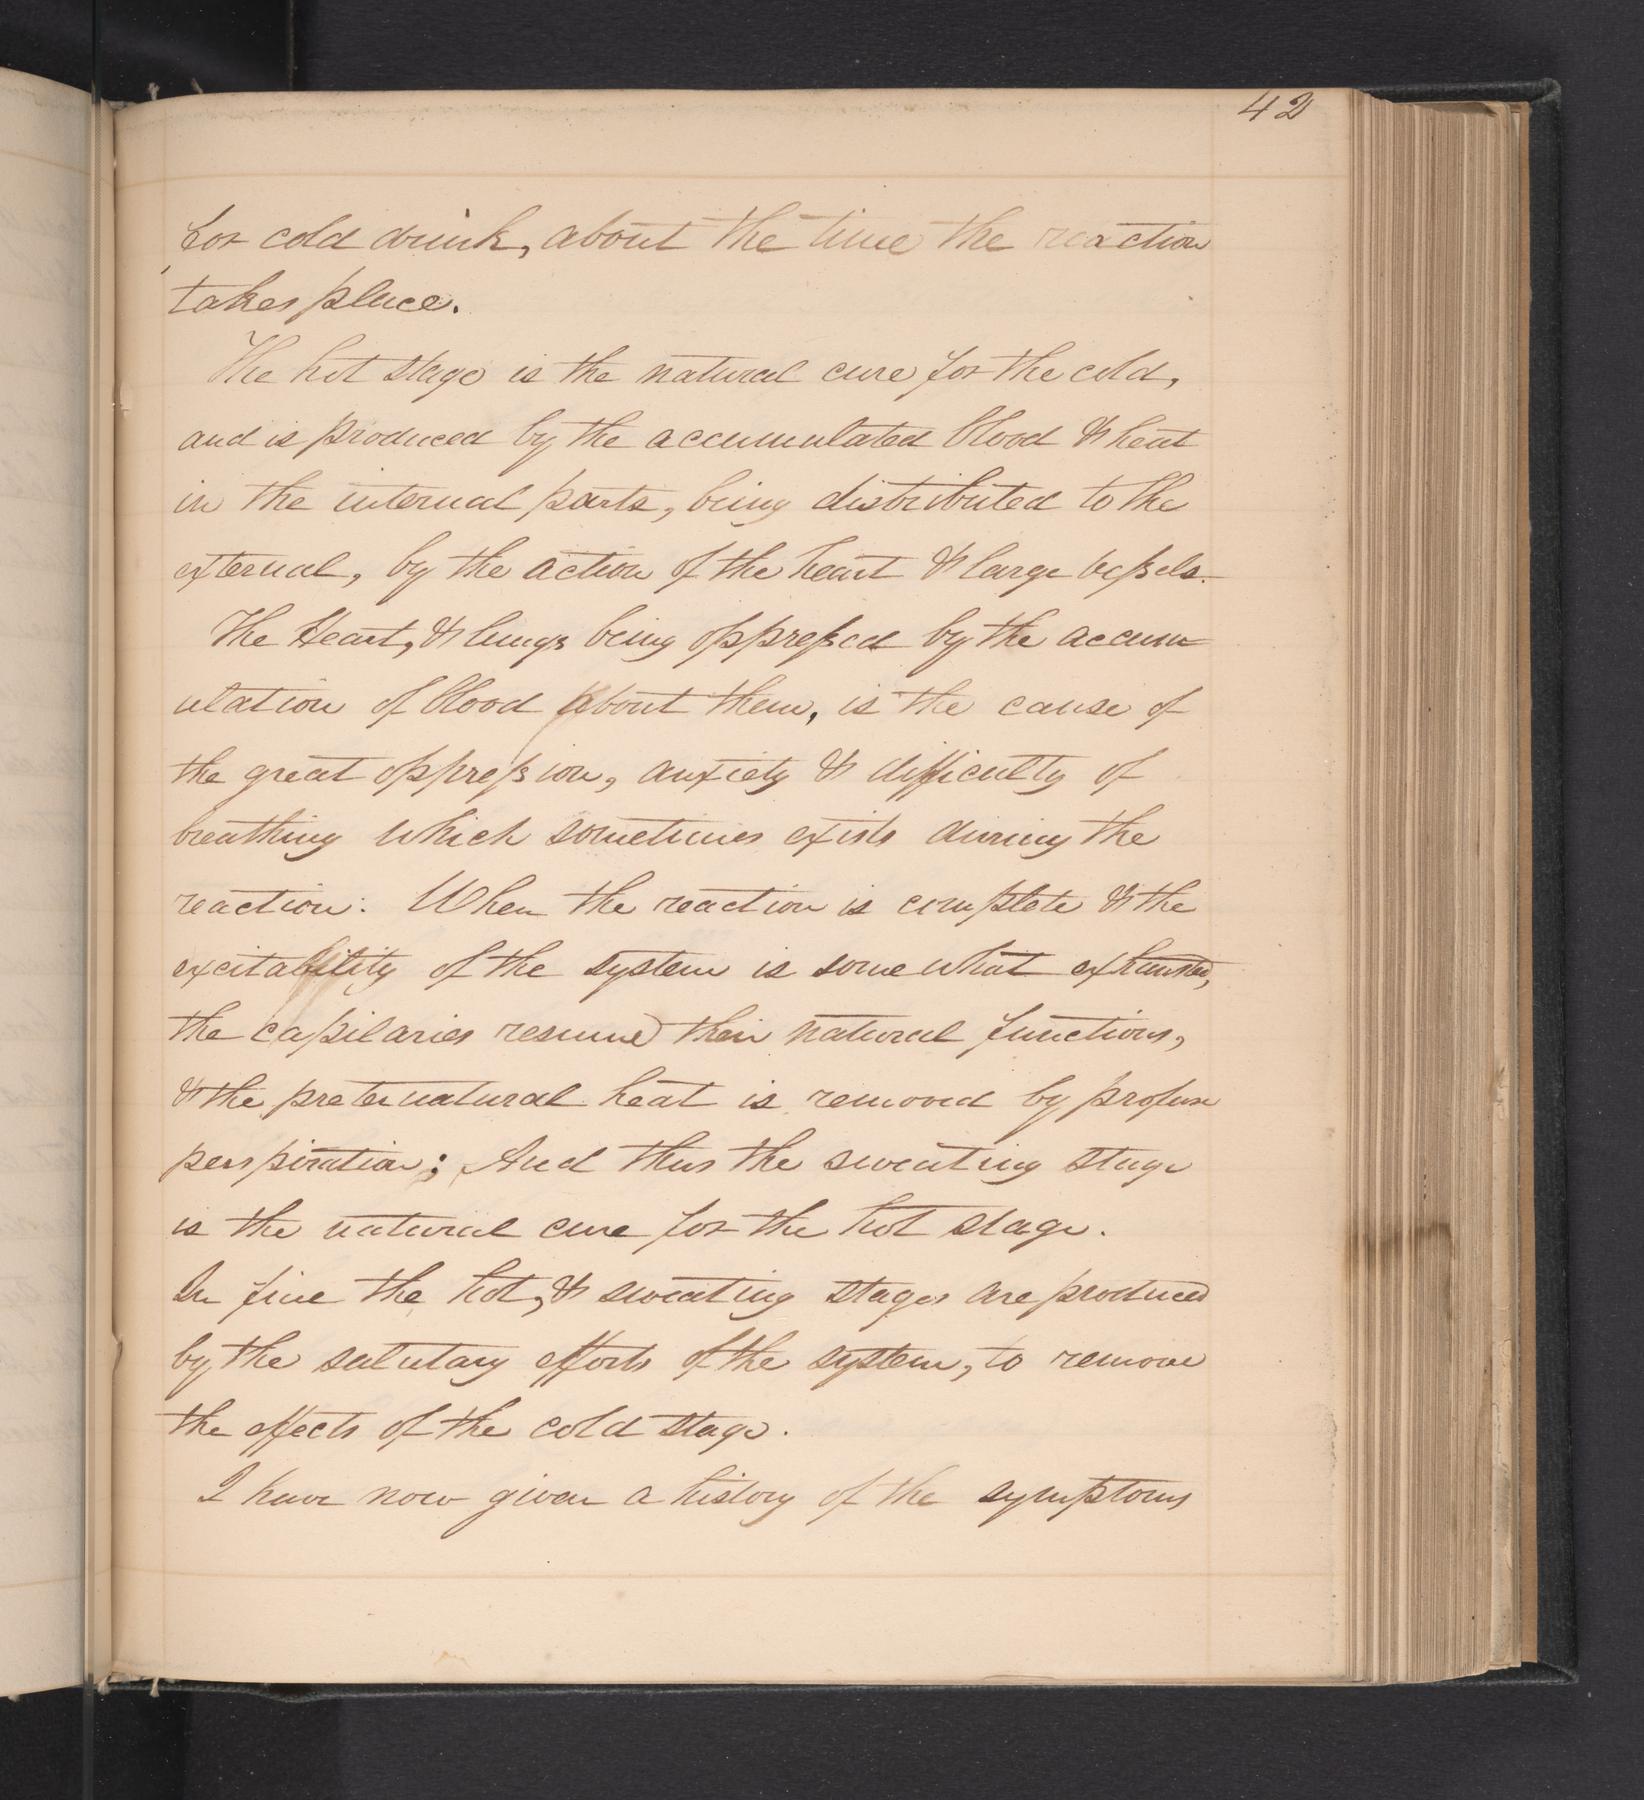 42
for cold drink, about the time the reaction
takes place.
The hot stage is the natural cure for the cold,
and is produced by the accumulated blood & heat
in the internal parts, being distributed to the
external, by the action of the heart & large veſsels.
The Heart, & lungs being oppreſsed by the accum
ulation of blood about them, is the cause of
the great oppreſsion, anxiety & difficulty of
breathing which sometimes exists during the
reaction. When the reaction is complete & the
excitability of the system is somewhat exhausted,
the capilaries resume their natural functions,
& the preternatural heat is removed by profuse
perspiration; And thus the sweating stage
is the natural cure for the hot stage.
In fine the hot, & sweating stages are produced
by the salutary efforts of the system, to remove
the effects of the cold stage.
I have now given a history of the symptoms